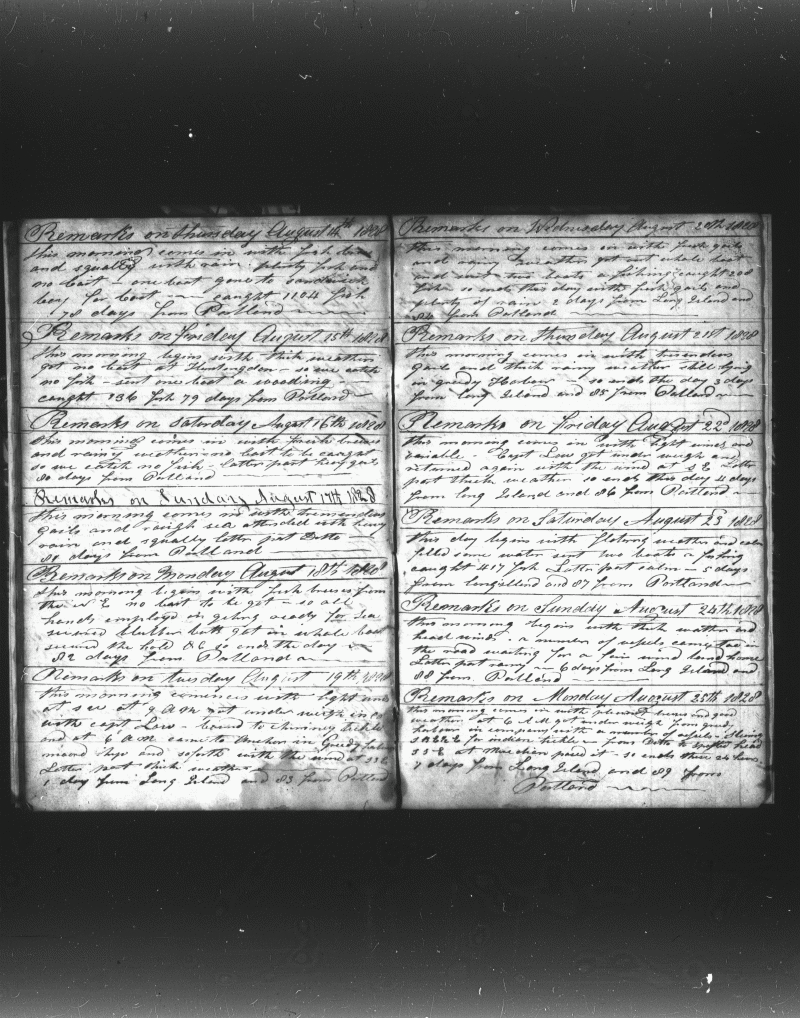 Remarks on Thursday August 14th 1828
this morning comes in with fresh
and squally with rain plenty fish and
no bait - one boat gone to
bay for bait - caught 1104 fish
78 days from Portland
Remarks on friday August 15th 1828
this morning begins with thick weather
got no bait at Huntingdon - so we catch
no fish - sent one boat a wooding
caught 136 fish 79 days from Portland
Remarks on Saturday August 16th 1828
this morning comes in with fresh breeses
and rainy weather no bait to be caught
so we catch no fish - latter part heavy gails
80 days from Portland
Remarks on Sunday August 17th 1828
this morning comes in with tremendius
gails and rough sea attended with heavy
rain and squally latter part Ditto
81 days from Portland
Remarks on Monday August 18th 1828
this morning begins with fresh breeses from
the N E no bait to be got - so all
hands employed in geting ready for sea
secured blubber butt got in whale boat
secured the hold &c so ends the day
82 days from Portland
Remarks on tuesday August 19th 1828
this morning comences with light winds
at s w at 9 A m got under weigh in co
with capt Low - bound to chimney tickle
and at 6 A m came to Anchor in Greedy harbour
moored ship and so forth with the wind at S S E
Latter part thick weather
1 day from Long Island and 83 from Portland
Remarks on Wednesday August 20th 1828
this morning comes in with fresh gails
and rainy weather got out whale boat
and sent two boats a fishing caught 208
fish so ends this day with fresh gails and
plenty of rain 2 days from Long Island and
84 from Portland
Remarks on thursday August 21st 1828
this morning comes in with tremendius
gails and thick rainy weather still lying
in greedy Harbour - so ends the day 3 days
from long Island and 85 from Portland
Remarks on friday August 22d 1828
this morning comes in with light winds and
variable - Capt Low got under weigh and
returned again with the wind at S E Latter
part thick weather so ends this day 4 days
from long Island and 86 from Portland
Remarks on Saturday August 23 1828
this day begins with weather and calm
filled some water sent two boats a fishing
caught 417 fish Latter part calm - 5 days
from long Island and 87 from Portland
Remarks on Sunday August 24th 1828
this morning begins with thick weather and
head winds - a number of vessels in
the road waiting for a fair wind bound home
Latter part rainy - 6 days from Long Island and
88 from Portland
Remarks on Monday August 25th 1828
this morning comes in with pleasant breeses and good
weather at 6 A M got under weigh from greedy
harbour in company with a number of vessels
for indian tickle - from Ditto to spotted head
S S E at Meridian pased it - so ends these 24 hours
7 days from Long Island and 89 from
Portland